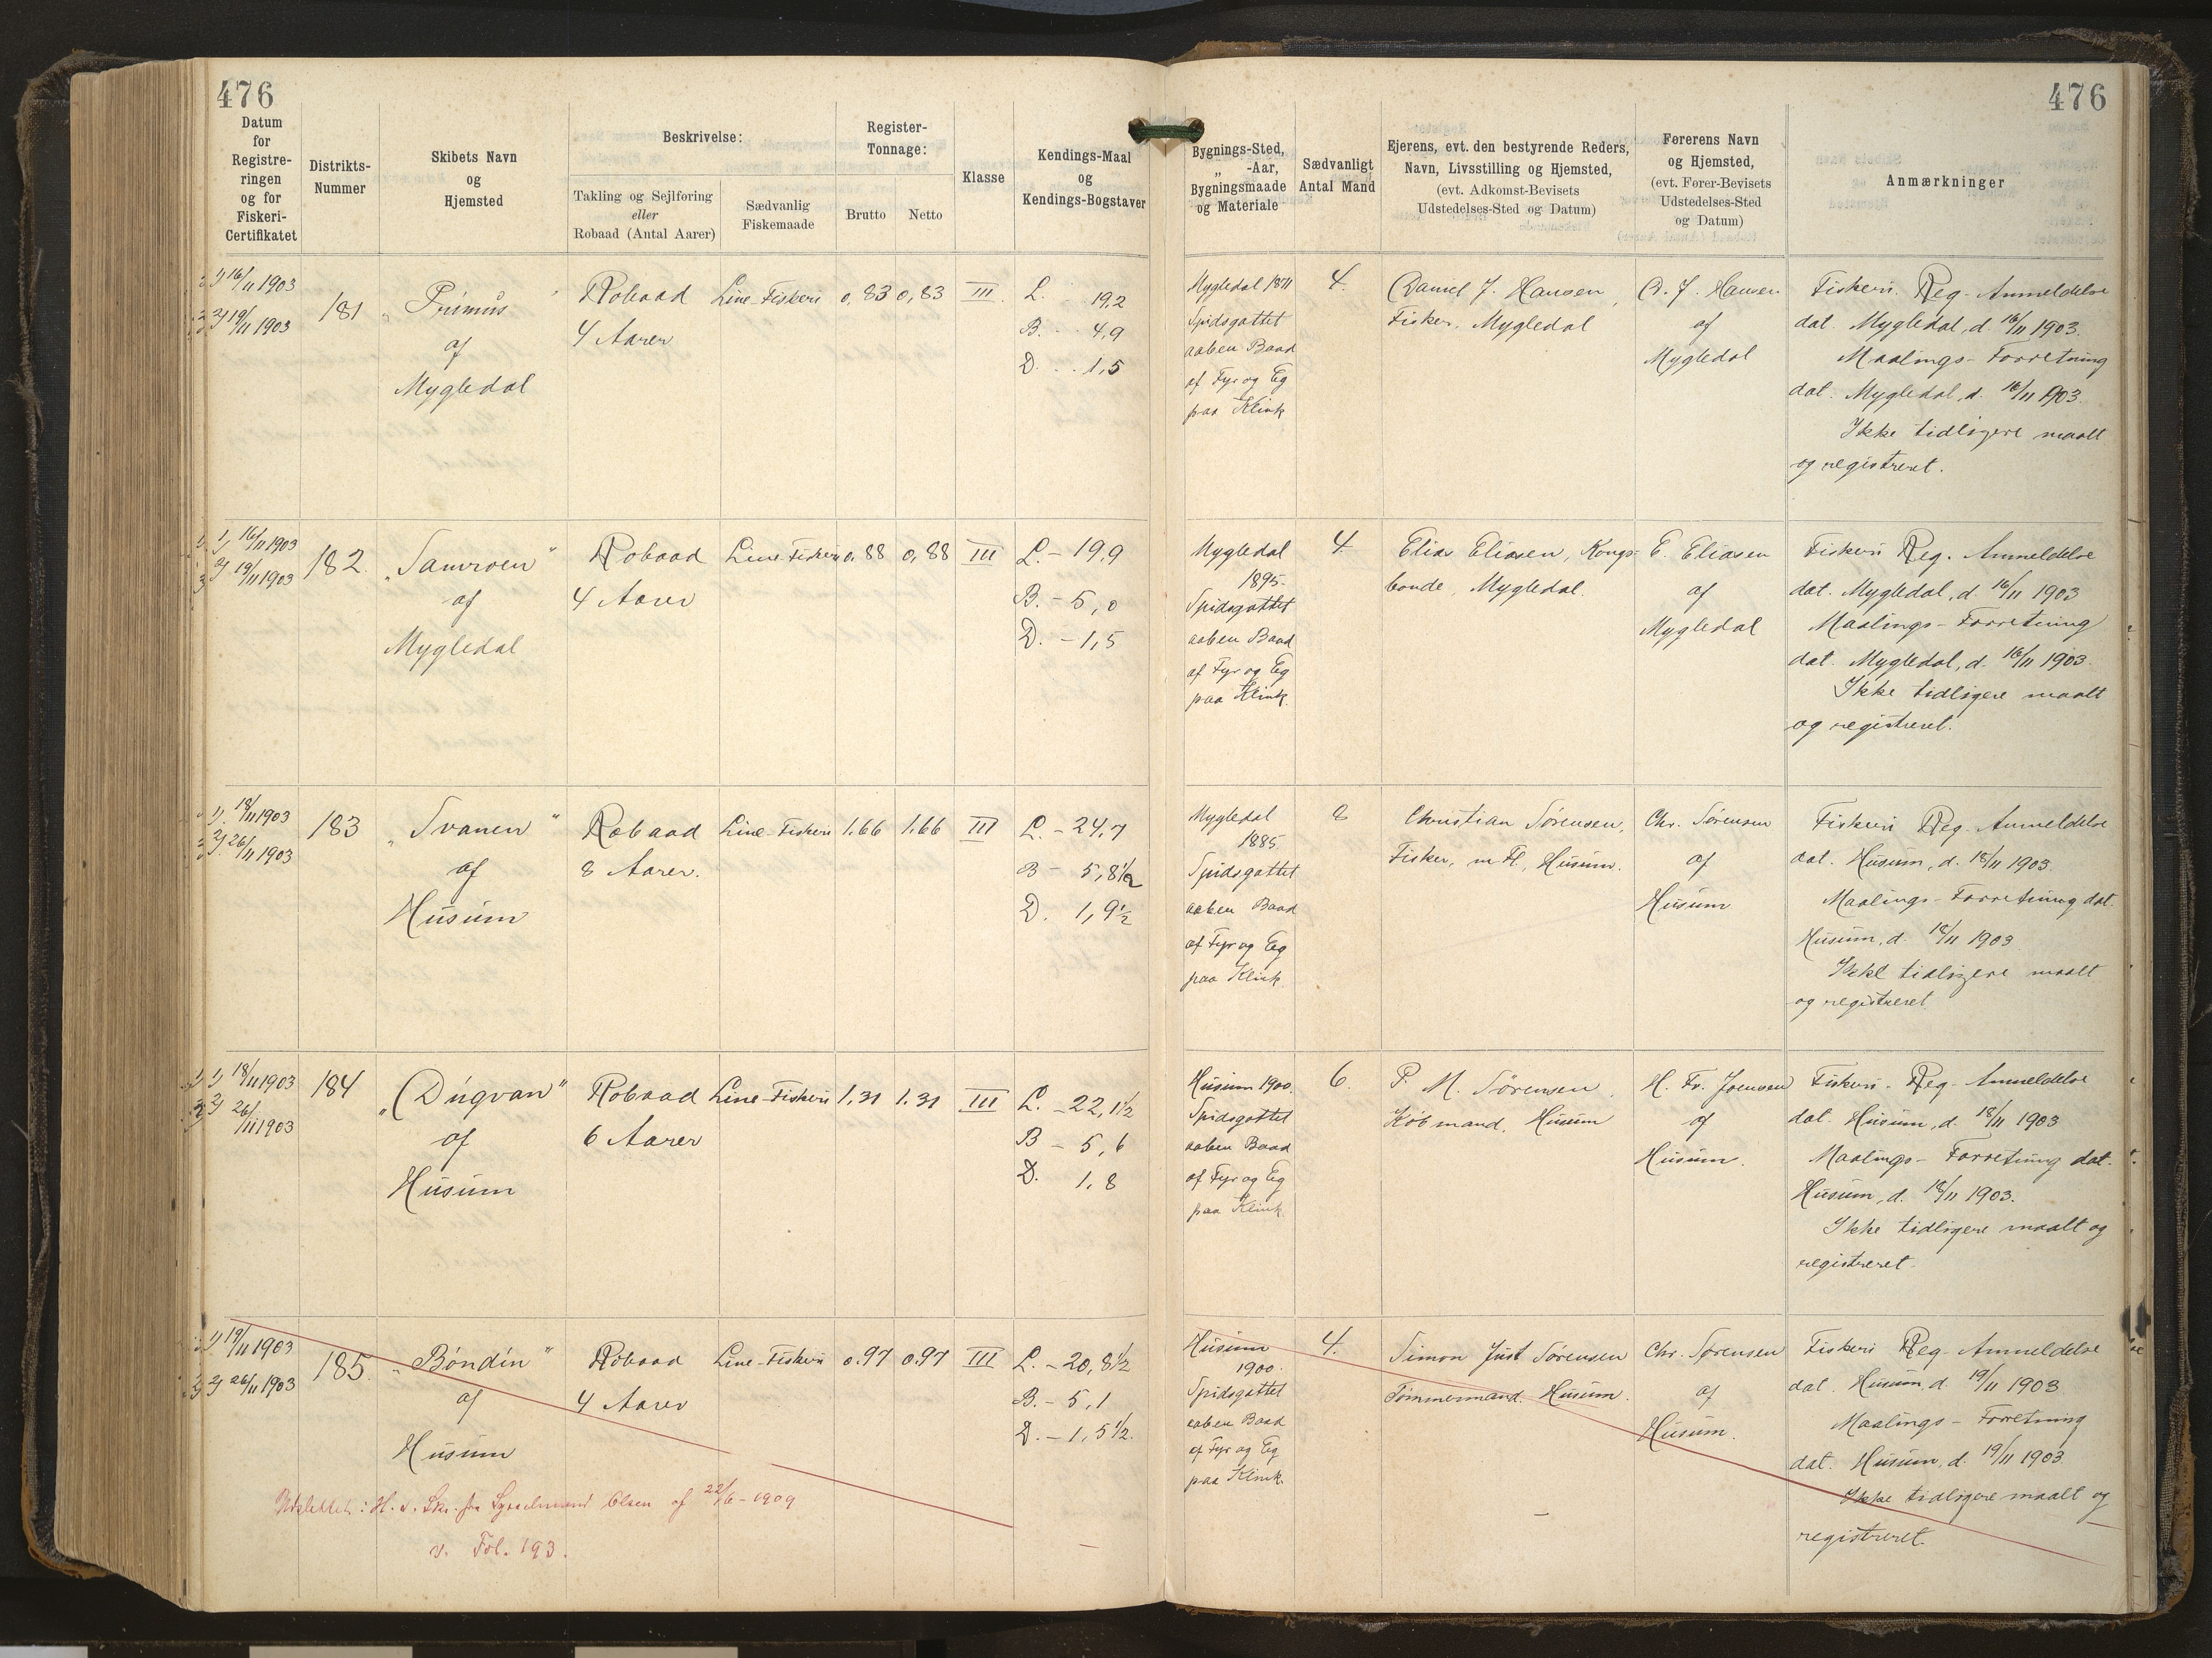 476
476
Datum
for
Registre-
ringen
og for
Fiskeri-
Certifikatet
Distrikts-
Nummer
Skibets Navn
og
Hjemsted
Beskrivelse:
Takling og Sejlføring
eller
Robaad (Antal Aarer)
Sædvanlig
Fiskemaade
Register-
Tonnage:
Brutto
Netto
Klasse
Kendings-Maal
og
Kendings-Bogstaver
Bygnings-Sted,
„ -Aar,
Bygningsmaade
og Materiale
Sædvanligt
Antal Mand
Ejerens, evt. den bestyrende Reders,
Navn, Livsstilling og Hjemsted,
(evt. Adkomst-Bevisets
Udstedelses-Sted og Datum)
Førerens Navn
og Hjemsted,
(evt. Fører-Bevisets
Udstedelses-Sted
og Datum)
Anmærkninger
1) 16/11 1903
2) 19/11 1903
181
„Primus"
af
Mygledal
Robaad
4 Aarer
Line-Fiskeri
0,83
0,83
III
L. 19,2
B. 4,9
D. 1,5
Mygledal 1871
Spidsgattet
aaben Baad
af Fyr og Eg
paa Klink
4.
Daniel J. Hansen,
Fisker, Mygledal
D. J. Hansen
af
Mygledal
Fiskeri-Reg-Anmeldelse
dat. Mygledal, d. 16/11 1903.
Maalings-Forretning
dat. Mygledal, d. 16/11 1903.
Ikke tidligere maalt
og registreret.
1) 16/11 1903
2) 19/11 1903
182.
„Samroen"
af
Mygledal
Robaad
4 Aarer
Line-Fiskeri
0,88
0,88
III
L. - 19,9
B. - 5,0
D. - 1,5
Mygledal
1895.
Spidsgattet
aaben Baad
af Fyr og Eg
paa Klink.
4.
Elias Eliasen, Kongs-
bonde, Mygledal.
E. Eliasen
af
Mygledal
Fiskeri Reg. Anmeldelse
dat. Mygledal, d. 16/11 1903
Maalings-Forretning
dat. Mygledal, d. 16/11 1903.
Ikke tidligere maalt
og registreret.
1) 18/11 1903
2) 26/11 1903
183
„Svanen"
af
Husum
Robaad
8 Aarer.
Line-Fiskeri
1.66
1.66
III
L. - 24,7
B - 5,8½
D. 1,9½
Mygledal
1885.
Spidsgattet
aaben Baad
af Fyr og Eg
paa Klink
8
Christian Sørensen,
Fisker, m Fl., Husum.
Chr. Sørensen
af
Husum
Fiskeri Reg-Anmeldelse
dat. Husum, d. 18/11 1903.
Maalings-Forretning dat.
Husum, d. 18/11 1903
Ikke tidligere maalt
og registreret
1) 18/11 1903
2) 26/11 1903
184
„Dugvan"
af
Husum
Robaad
6 Aarer
Line-Fiskeri
1,31
1.31
III
L. - 22,1½
B - 5,6
D. 1,8
Husum 1900.
Spidsgattet
aaben Baad
af Fyr og Eg
paa Klink.
6.
P. M. Sørensen,
Købmand, Husum
H. Fr. Joensen
af
Husum.
Fiskeri-Reg-Anmeldelse
dat. Husum, d. 18/11 1903
Maalings-Forretning dat.
Husum, d. 18/11 1903.
Ikke tidligere maalt og
registreret.
1) 19/11 1903
2) 26/11 1903
185.
„Bóndin"
af
Husum
Robaad
4 Aarer
Line-Fiskeri
0.97
0.97
III
L. - 20,8½
B. - 5,1
D. - 1,5½.
Husum
1900.
Spidsgattet
aaben Baad
af Fyr og Eg
paa Klink.
4.
Simon Just Sørensen
Tømmermand. Husum.
Chr. Sørensen
af
Husum.
Fiskeri Reg-Anmeldelse
dat. Husum, d 19/11 1903
Maalings-Forretning
dat. Husum, d. 19/11 1903.
Ikke tidligere maalt og
registreret.
Udslettet: H. v. Skr. fra Sysselmand Olsen af 22/6-1909
v. Fol. 193.